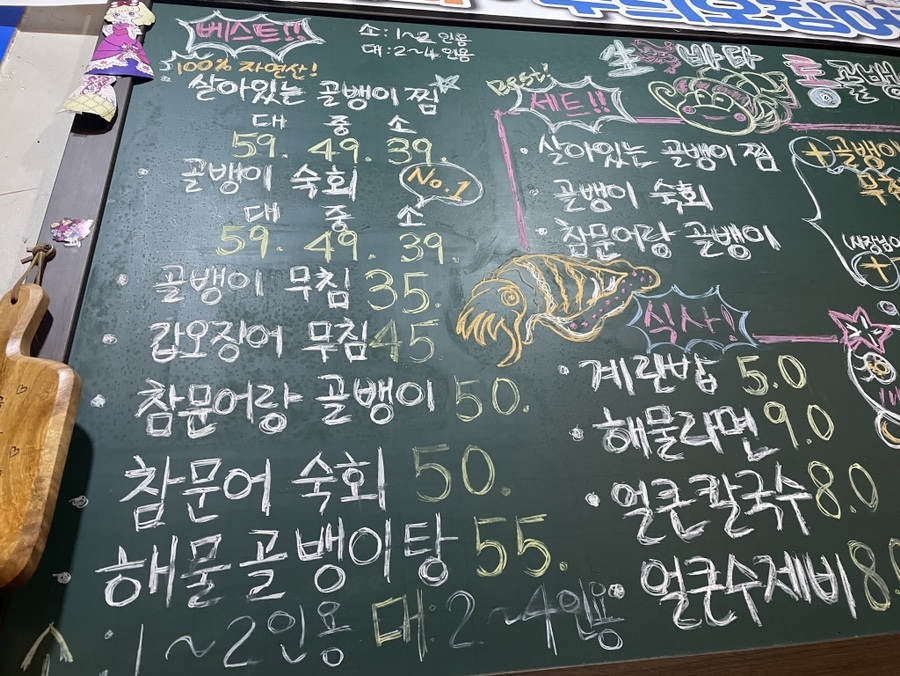 베스트!!
소: 1~2 인용
대: 2~4 인용
100% 자연산!
살아있는 골뱅이 찜
대 중 소
59. 49. 39.
· 골뱅이 숙회 No.1
대 중 소
59. 49. 39.
· 골뱅이 무침 35.
· 갑오징어 무침 45
· 참문어랑 골뱅이 50.
· 참문어 숙회 50.
· 해물골뱅이탕 55.
: 1~2인용 대: 2~4인용
생 바다 통골뱅
Best!
세트!!
· 살아있는 골뱅이 찜
골뱅이 숙회
· 참문어랑 골뱅이
+골뱅이
(사장님
+
식사!
· 계란밥 5.0
· 해물라면 9.0
· 얼큰칼국수 8.0
· 얼큰수제비 8.